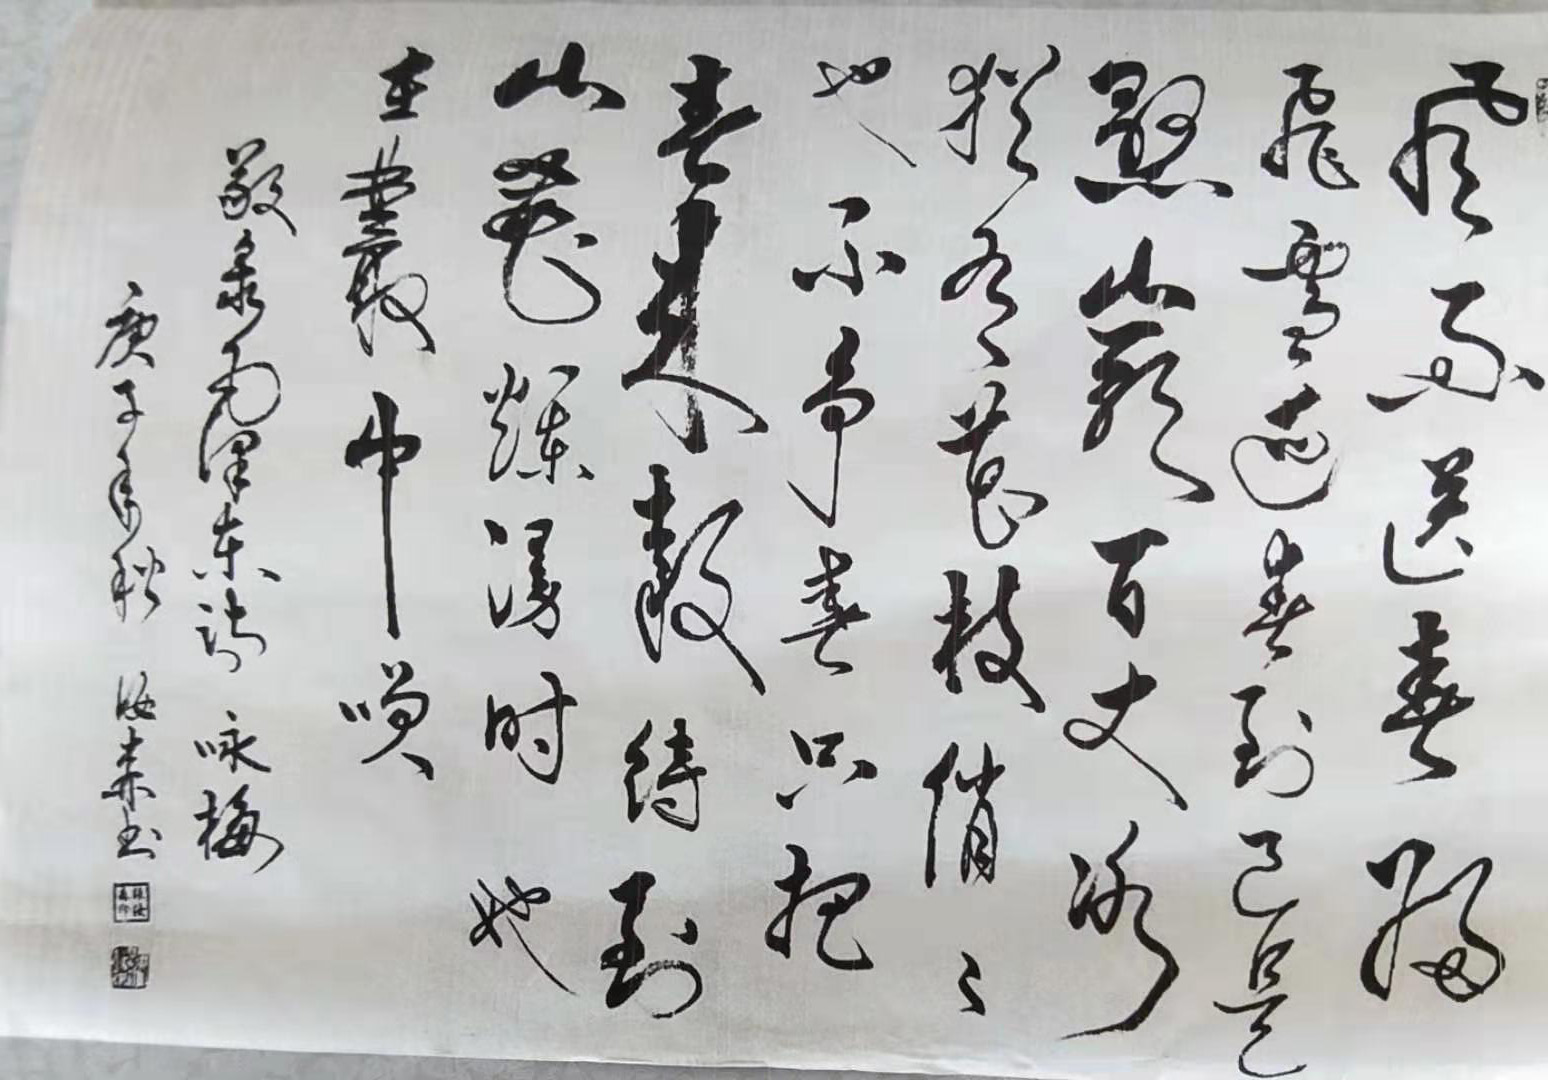 风雨送春归
飛雪迎春到已是
懸崖百丈冰
犹有花枝俏〻
也不争春只把
春来報待到
山花烂漫时她
在叢中笑
敬录毛泽东词 咏梅
庚子年秋 汝森书